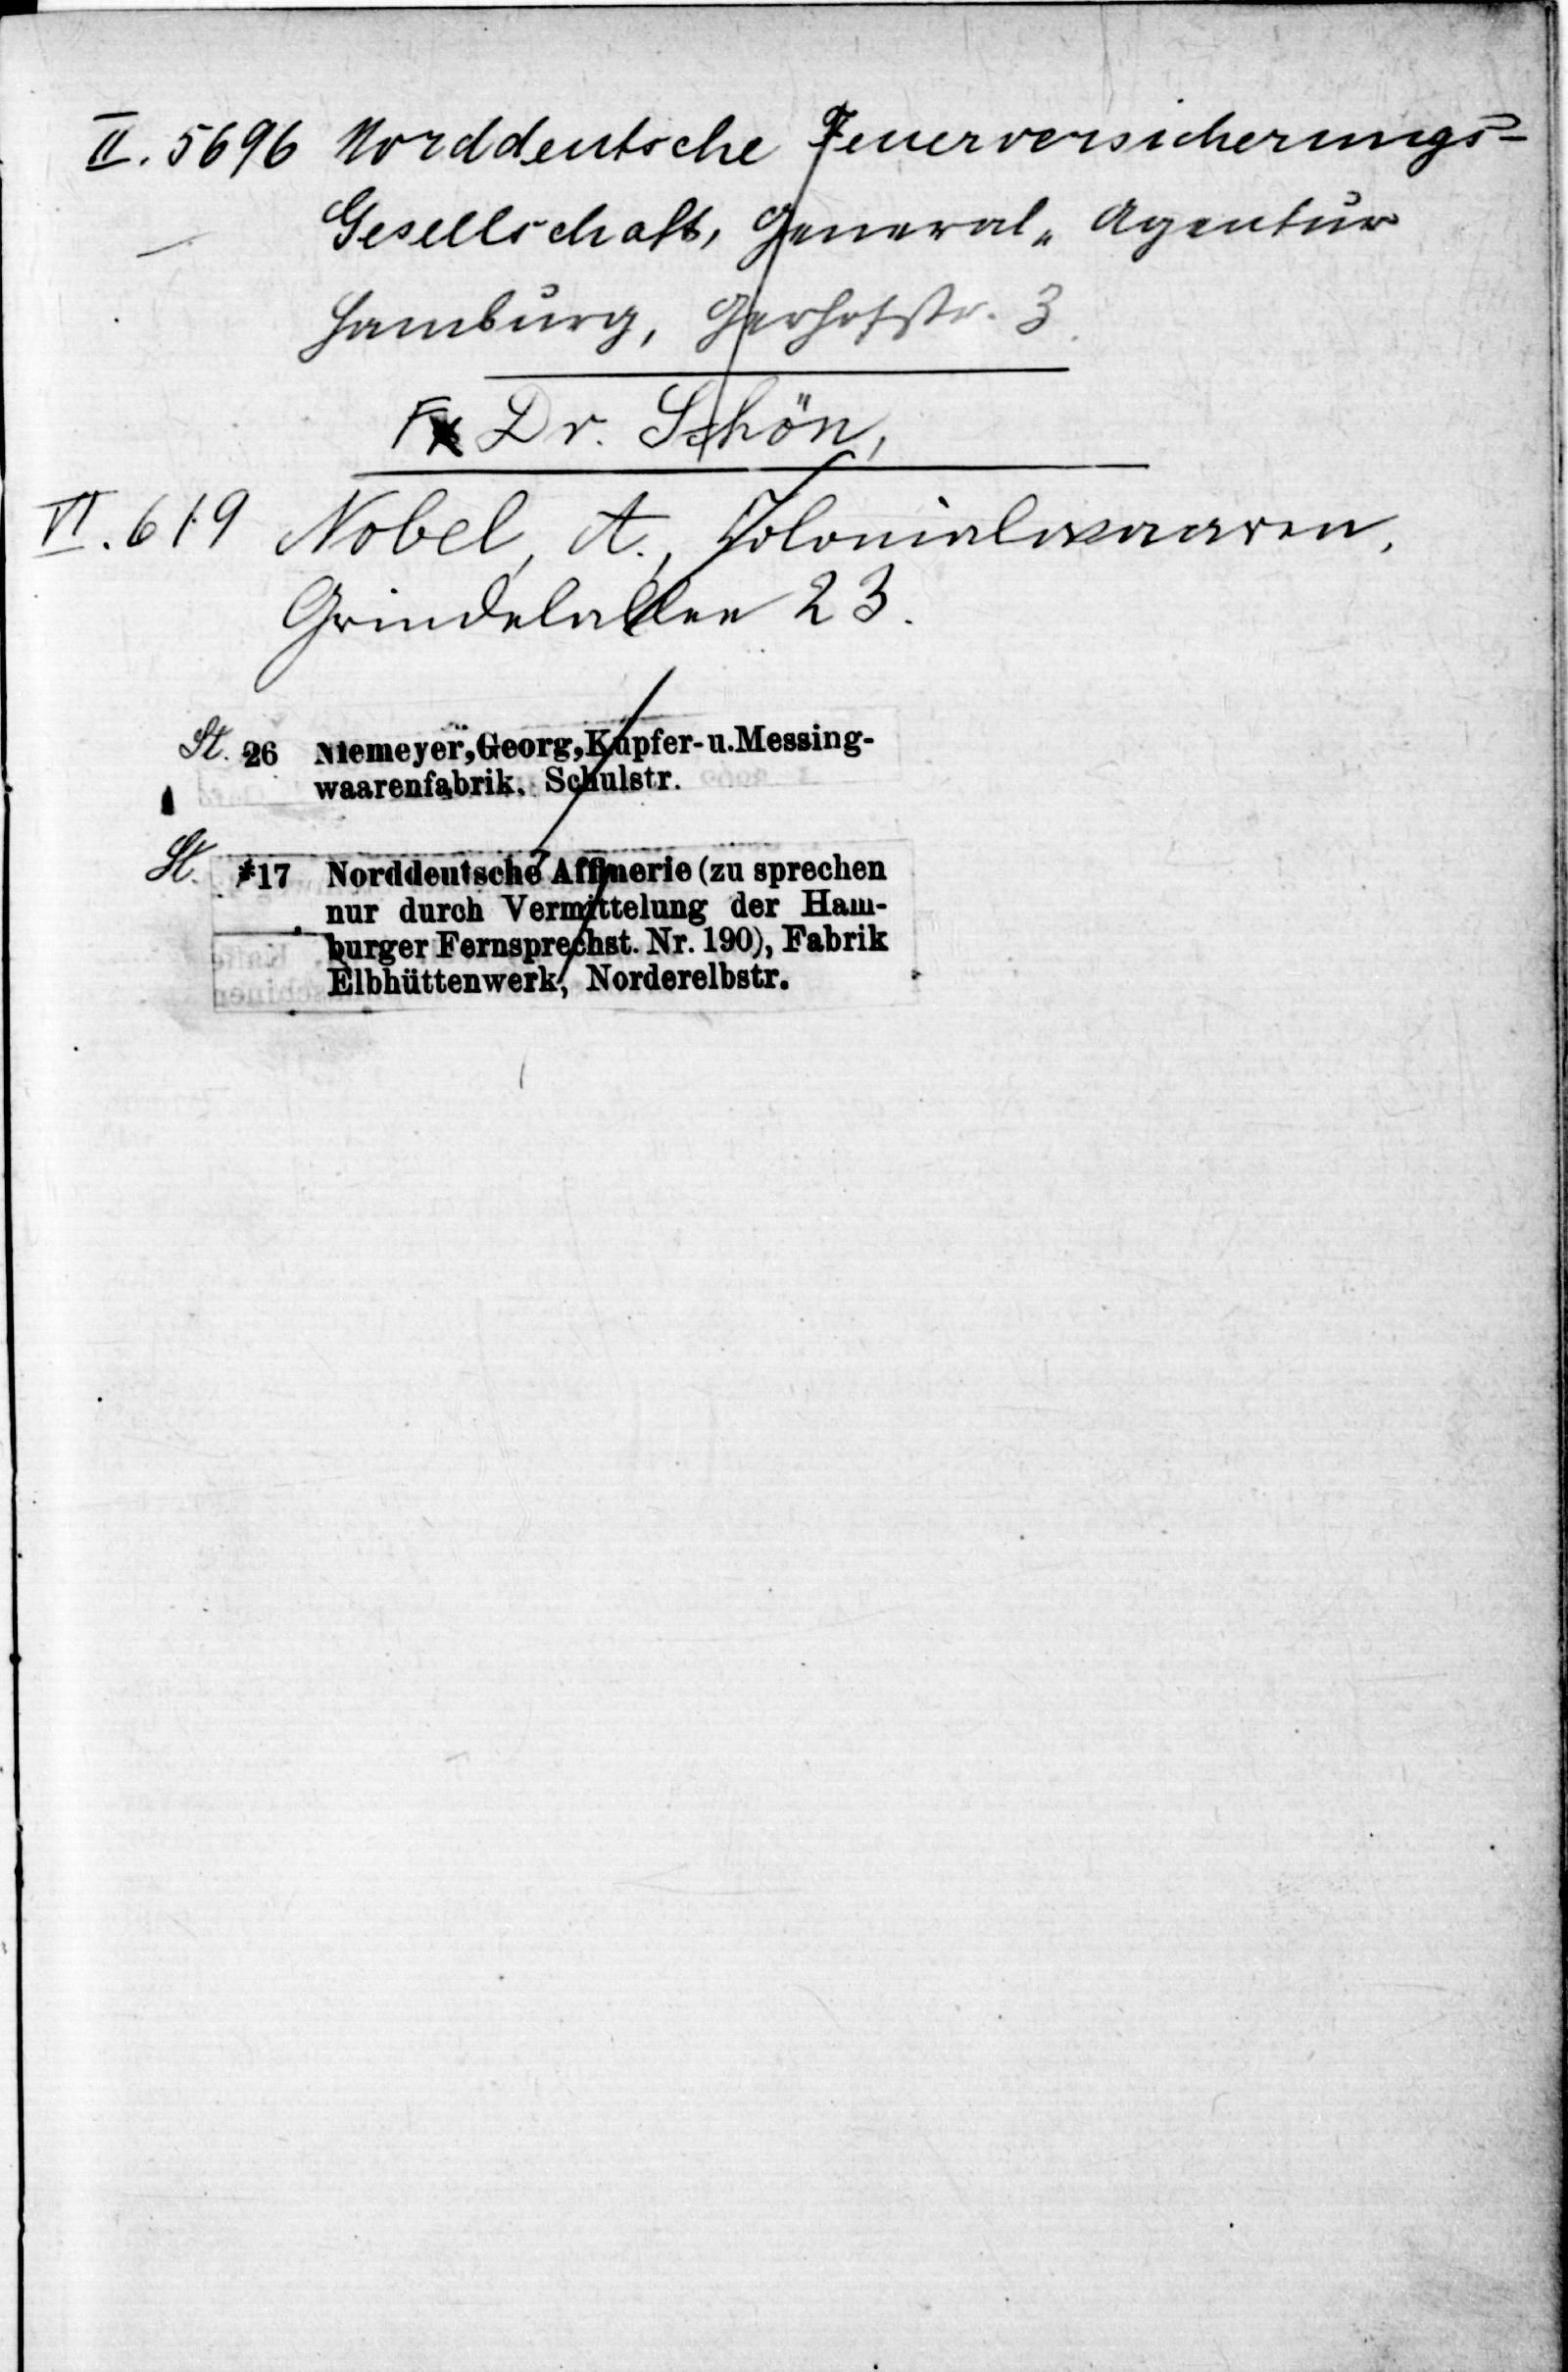 II. 5696 Norddeutsche Feuerversicherungs-
Gesellschaft, General-Agentur
Hamburg, Gerhofstr. 3.
Dr. Schön,
VI. 619 Nobel, A., Kolonialwaaren,
Grindelallee 23.
St. 26 Niemeyer, Georg, Kupfer- u. Messing-
waarenfabrik. Schulstr.
St. *17 Norddeutsche Affinerie (zu sprechen
nur durch Vermittelung der Ham-
burger Fernsprechst. Nr. 190), Fabrik
Elbhüttenwerk, Norderelbstr.